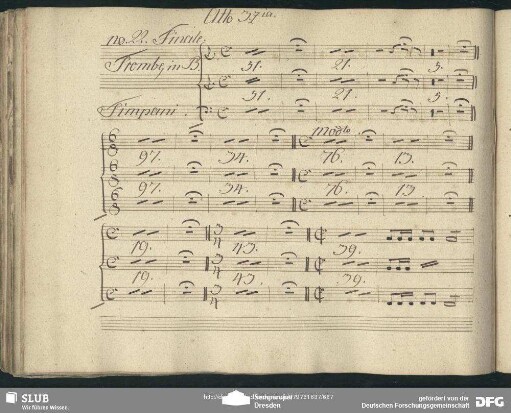 Atto 3za.
no. 22. Finale.
Trombe in B
31. 21. 3.
Timpani.
31. 21. 3.
Modto
97. 34. 76. 13.
97. 34. 76. 13.
19. 43. 39.
19. 43. 39.
SLUB
Wir führen Wissen.
Dresden
gefördert von der
Deutschen Forschungsgemeinschaft
DFG